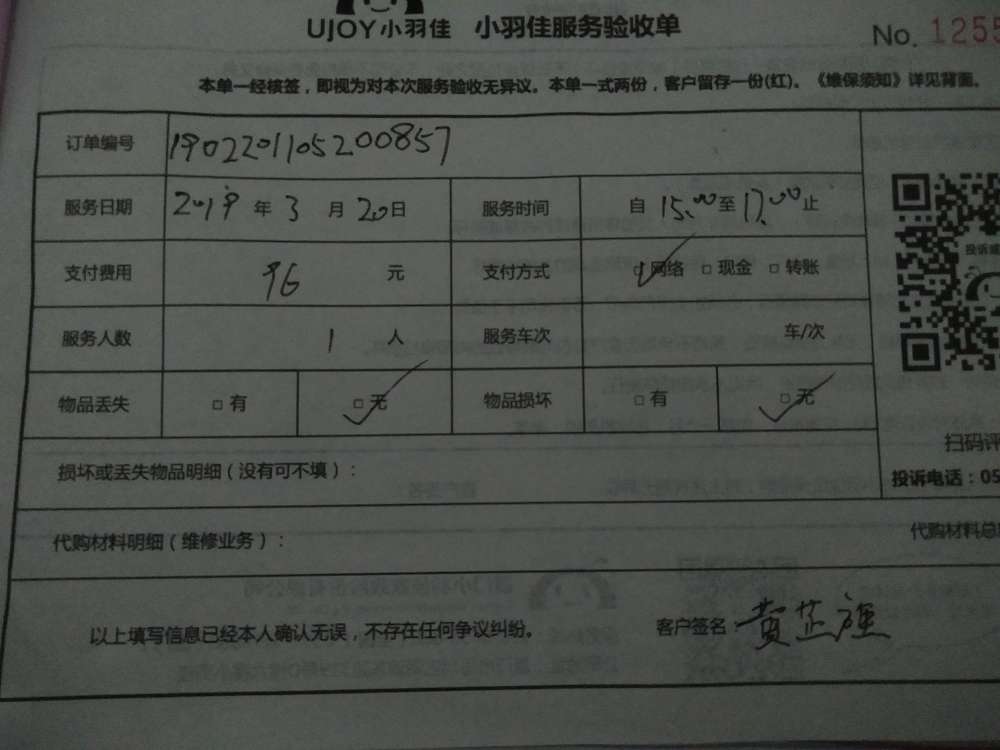 UJOY小羽佳 小羽佳服务验收单
No. 1255
本单一经核签，即视为对本次服务验收无异议。本单一式两份，客户留存一份(红)。《维保须知》详见背面。
订单编号 1902201105200857
服务日期 2019年3月20日 服务时间 自15:00至17:00止
支付费用 96元 支付方式 □网络 □现金 □转账
服务人数 1人 服务车次 车/次
物品丢失 □有 □无 物品损坏 □有 □无
损坏或丢失物品明细（没有可不填）：
扫码评
投诉电话：05
代购材料明细（维修业务）：
代购材料总
以上填写信息已经本人确认无误，不存在任何争议纠纷。
客户签名